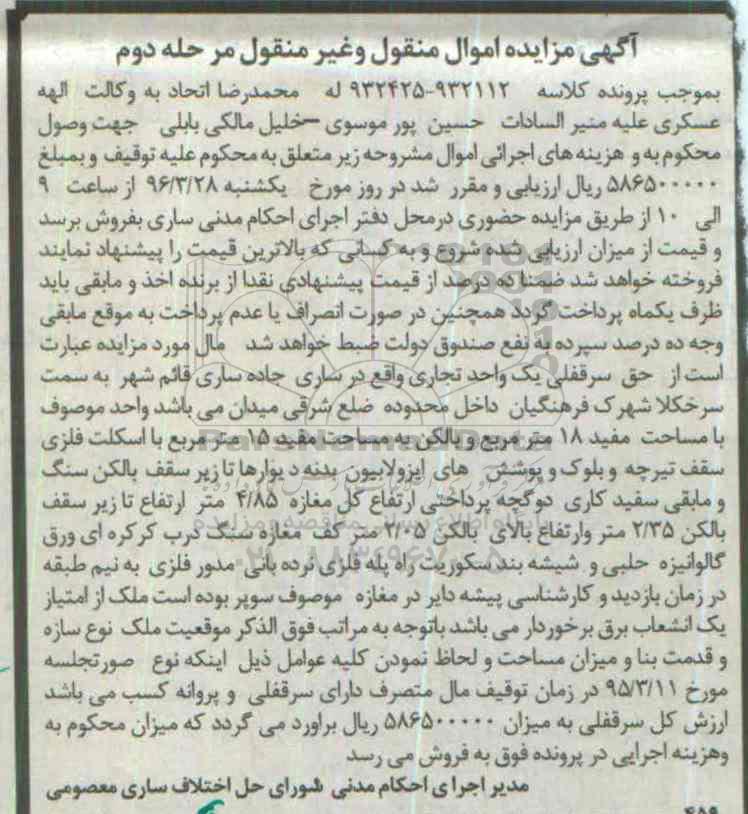 آگهی مزایده اموال منقول وغیر منقول مر حله دوم
بموجب پرونده کلاسه ۹۳۲۱۱۲-۹۳۲۴۲۵ له محمدرضا اتحاد به وکالت الهه
عسکری علیه منیر السادات حسین پور موسوی –خلیل مالکی بابلی جهت وصول
محکوم به و هزینه های اجرائی اموال مشروحه زیر متعلق به محکوم علیه توقیف و بمبلغ
۵۸۶۵۰۰۰۰۰ ریال ارزیابی و مقرر شد در روز مورخ یکشنبه ۹۶/۳/۲۸ از ساعت ۹
الی ۱۰ از طریق مزایده حضوری درمحل دفتر اجرای احکام مدنی ساری بفروش برسد
و قیمت از میزان ارزیابی شده شروع و به کسانی که بالاترین قیمت را پیشنهاد نمایند
فروخته خواهد شد ضمنا ده درصد از قیمت پیشنهادی نقدا از برنده اخذ و مابقی باید
ظرف یکماه پرداخت گردد همچنین در صورت انصراف یا عدم پرداخت به موقع مابقی
وجه ده درصد سپرده به نفع صندوق دولت ضبط خواهد شد مال مورد مزایده عبارت
است از حق سرقفلی یک واحد تجاری واقع در ساری جاده ساری قائم شهر به سمت
سرخکلا شهرک فرهنگیان داخل محدوده ضلع شرقی میدان می باشد واحد موصوف
با مساحت مفید ۱۸ متر مربع و بالکن به مساحت مفید ۱۵ متر مربع با اسکلت فلزی
سقف تیرچه و بلوک و پوشش های ایزولابیون بدنه دیوارها تا زیر سقف بالکن سنگ
و مابقی سفید کاری دوگچه پرداختی ارتفاع کل مغازه ۴/۸۵ متر ارتفاع تا زیر سقف
بالکن ۲/۳۵ متر وارتفاع بالای بالکن ۲/۰۵ متر کف مغازه سنگ کرب کرکره ای ورق
گالوانیزه حلبی و شیشه بند سکوریت راه پله فلزی نرده بانی مدور فلزی به نیم طبقه
در زمان بازدید و کارشناسی پیشه دایر در مغازه موصوف سوپر بوده است ملک از امتیاز
یک انشعاب برق برخوردار می باشد باتوجه به مراتب فوق الذکر موقعیت ملک نوع سازه
و قدمت بنا و میزان مساحت و لحاظ نمودن کلیه عوامل ذیل اینکه نوع صورتجلسه
مورخ ۹۵/۳/۱۱ در زمان توقیف مال متصرف دارای سرقفلی و پروانه کسب می باشد
ارزش کل سرقفلی به میزان ۵۸۶۵۰۰۰۰۰ ریال براورد می گردد که میزان محکوم به
وهزینه اجرایی در پرونده فوق به فروش می رسد
مدیر اجرای احکام مدنی شورای حل اختلاف ساری معصومی
۴۵۹
ParsNamadData